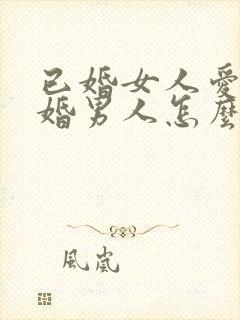 已婚女人愛
婚男人怎麼
風嵐